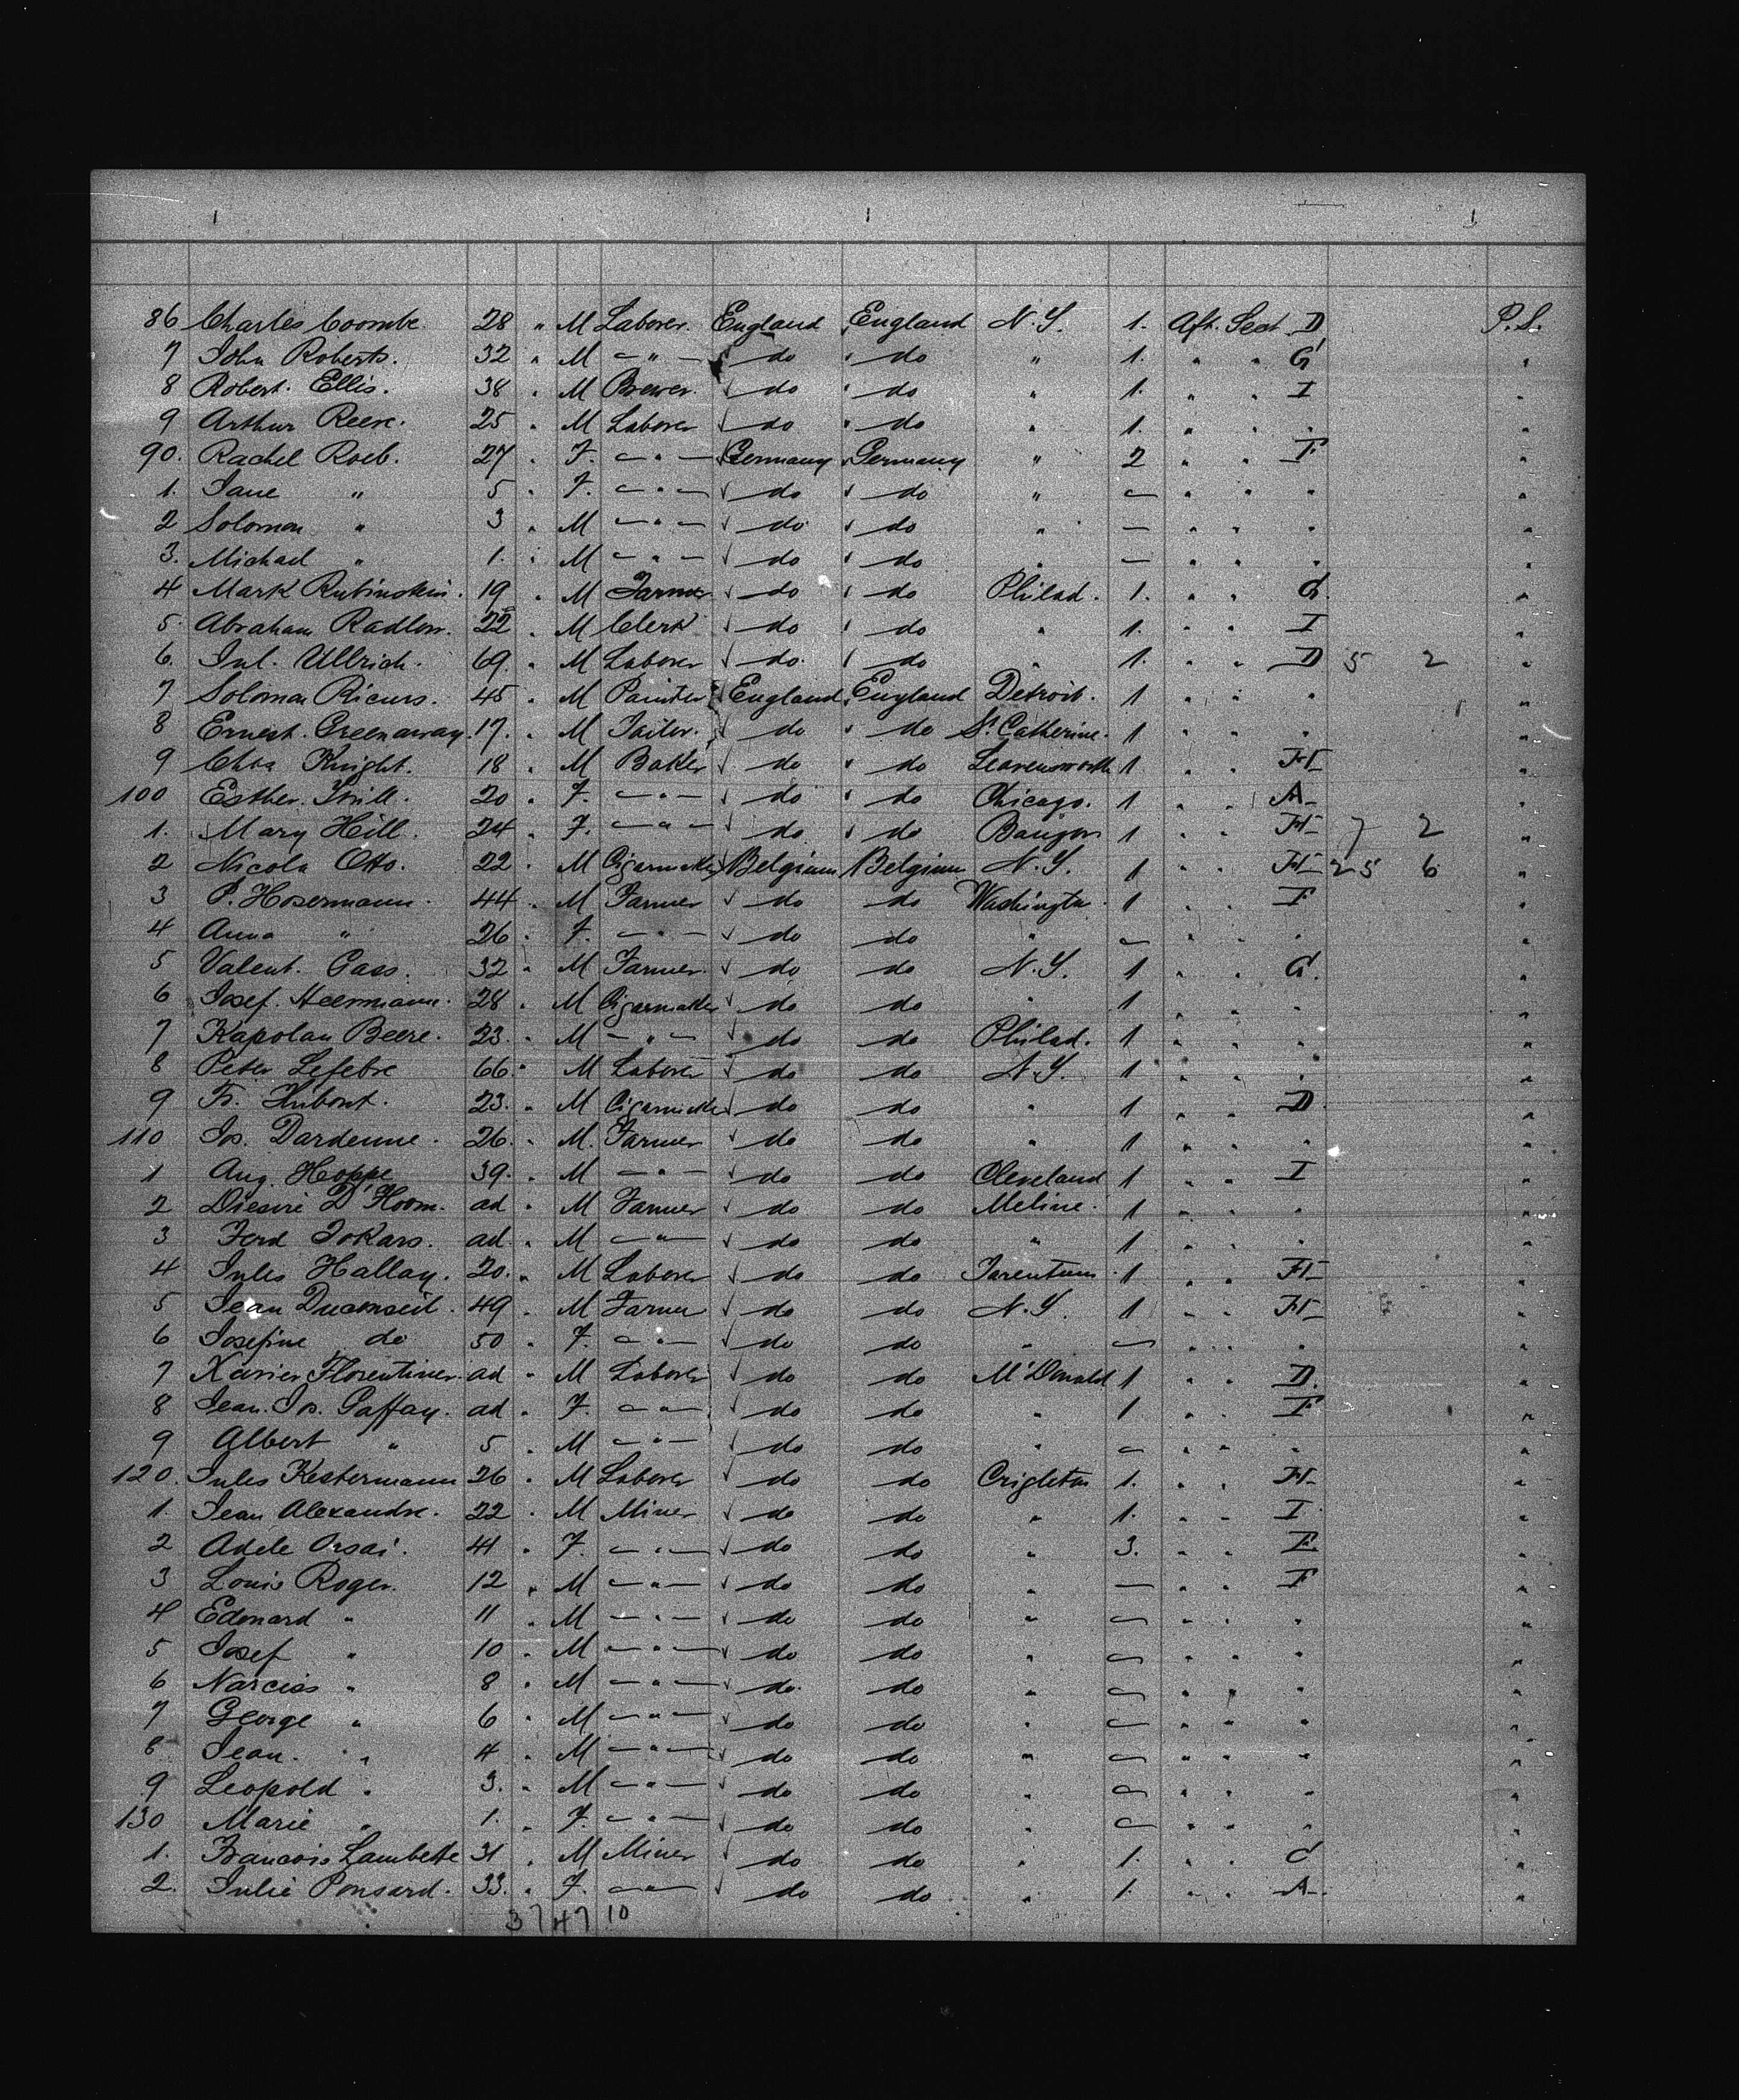 86 Charles Coombe. 28 " M Laborer. England England N.Y. 1. Aft. Sect D P.S.
7 John Roberts. 32 " M — " — do do " 1. " " G "
8 Robert. Ellis. 38 " M Brewer. do do " 1. " " I "
9 Arthur Reeve. 25 " M Laborer do do " 1. " " " "
90. Rachel Roeb. 27 " F. — " — Germany Germany " 2 " " F "
1. Jane " 5 " F. — " — do do " — " " " "
2 Solomon " 3 " M — " — do do " — " " " "
3. Michael " 1. " M — " — do do " — " " " "
4 Mark Rubinstein. 19 " M Farmer do do Philad. 1. " " G. "
5. Abraham Radlow. 22 " M Clerk do do " 1. " " I "
6. Jul. Ullrich. 69. " M Laborer do. do " 1. " " D 5 2 "
7 Solomon Ricurs. 45 " M Painter England England Detroit. 1 " " " "
8 Ernest. Greenaway. 17. " M Tailor. do do St. Catherine. 1 " " " "
9 Chas Knight. 18 " M Baker do do Leavensworth 1 " " H "
100 Esther. 20 " F. — " — do do Chicago. 1 " " A "
1. Mary Hill. 24 " F. — " — do do Bangor 1 " " H 7 2 "
2 Nicola Otto. 22 " M Cigarmaker Belgium Belgium N.Y. 1 " " H 25 6 "
3 P. Hosermann. 44 " M Farmer do do Washington. 1 " " F "
4 Anna " 26 " F. — " — do do " — " " " "
5 Valent. Gass. 32 " M Farmer. do do N.Y. 1 " " G. "
6 Josef. Heermann. 28 " M Cigarmaker do do " 1 " " " "
7 Kapolan Beere. 23. " M — " — do do Philad. 1 " " " "
8 Peter Lefebre 66. " M Laborer do do N.Y. 1 " " " "
9 Fr. Hubont. 23. " M Cigarmaker do do " 1 " " D. "
110 Jos. Dardenne. 26. " M. Farmer do do " 1 " " " "
1 Aug. Hoppe 39. " M — " — do do Cleveland 1 " " I "
2 Diesiré D'Hoom. ad " M Farmer do do Meline. 1 " " " "
3 Ferd Jokars. ad. " M — " — do do " 1 " " " "
4 Jules Hallay. 20. " M Laborer do do Tarentum. 1 " " H "
5 Jean Duconseil. 49. " M Farmer do do N.Y. 1 " " H "
6 Josefine do 50 " F. — " — do do " — " " " "
7 Xavier Florentiner. ad " M Laborer do do McDonald 1 " " D. "
8 Jean. Jos. Gaffay. ad " F. — " — do do " 1 " " F "
9 Albert " 5 " M — " — do do " — " " " "
120. Jules Kestermann 26 " M Laborer do do Crigleton 1. " " H "
1. Jean Alexandre. 22 " M Miner do do " 1. " " I "
2 Adele Orsai. 41 " F. — " — do do " 3. " " E "
3 Louis Roger. 12 " M — " — do do " — " " F "
4 Edouard " 11 " M — " — do do " — " " " "
5 Josef " 10 " M — " — do do " — " " " "
6 Narciss " 8 " M — " — do. do " — " " " "
7 George " 6 " M — " — do do " — " " " "
8 Jean. " 4 " M — " — do do " — " " " "
9 Leopold " 3. " M — " — do do " — " " " "
130 Marie " 1. " F. — " — do do " — " " " "
1. Francois Lambette 31 " M Miner do do " 1. " " C "
2. Julie Ponsard. 33. " F. — " — do do " 1. " " A "
37 47 10